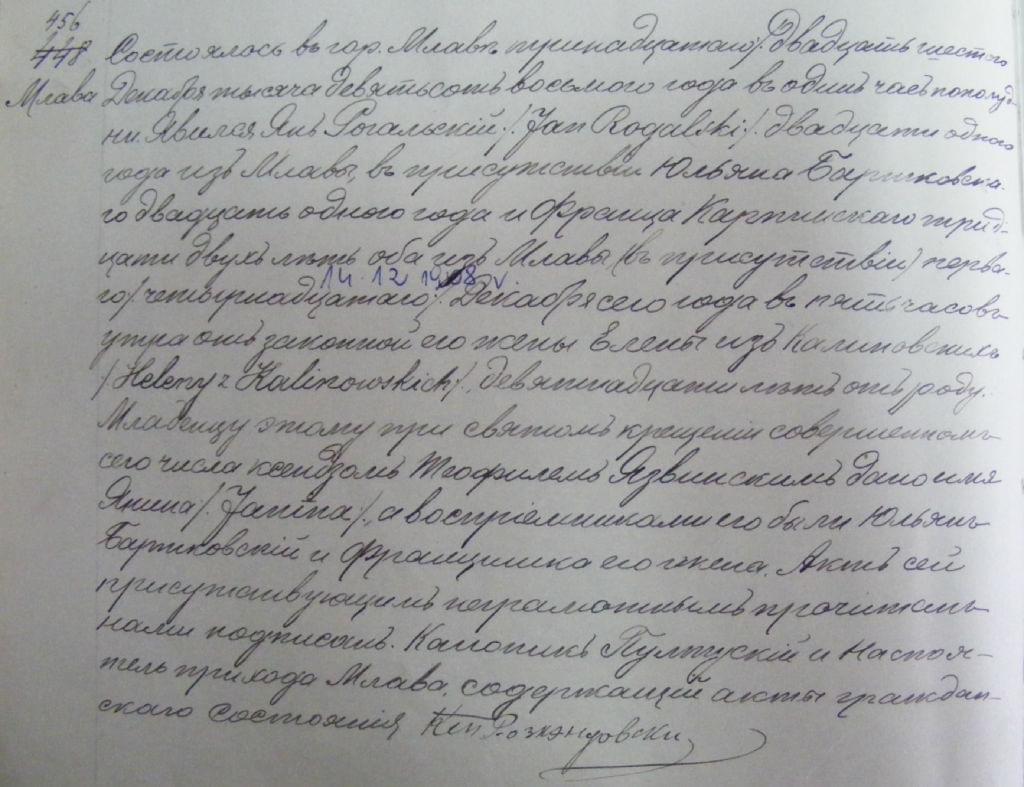 456
448 Состоялось въ гор. Млавѣ тринадцатаго/ двадцать шестого
Млава Декабря тысяча девятьсотъ восьмого года въ одинъ часъ пополуд-
ни. Явился Янъ Рогальскій /Jan Rogalski/ двадцати одного
года изъ Млавы, въ присутствіи Юльяна Бартковска-
го двадцать одного года и Франца Карпинскаго трид-
цати двухъ лѣтъ оба изъ Млавы (въ присутствіи) перва-
14.12 1908 r.
го/четырнадцатаго/ Декабря сего года въ пять часовъ
утра отъ законной его жены Елены изъ Калиновскихъ
/Heleny z Kalinowskich/ девятнадцати лѣтъ отъ роду.
Младенцу этому при святомъ крещеніи совершенномъ
сего числа ксендзомъ Теофилемъ Язвинскимъ дано имя
Янина /Janina/, а воспріемниками его были Юльянъ
Бартковскій и Францишка его жена. Актъ сей
присутствующимъ неграмотнымъ прочитанъ
нами подписанъ. Каноникъ Пултускій и Настоя-
тель прихода Млава, содержащій акты граждан-
скаго состоянія